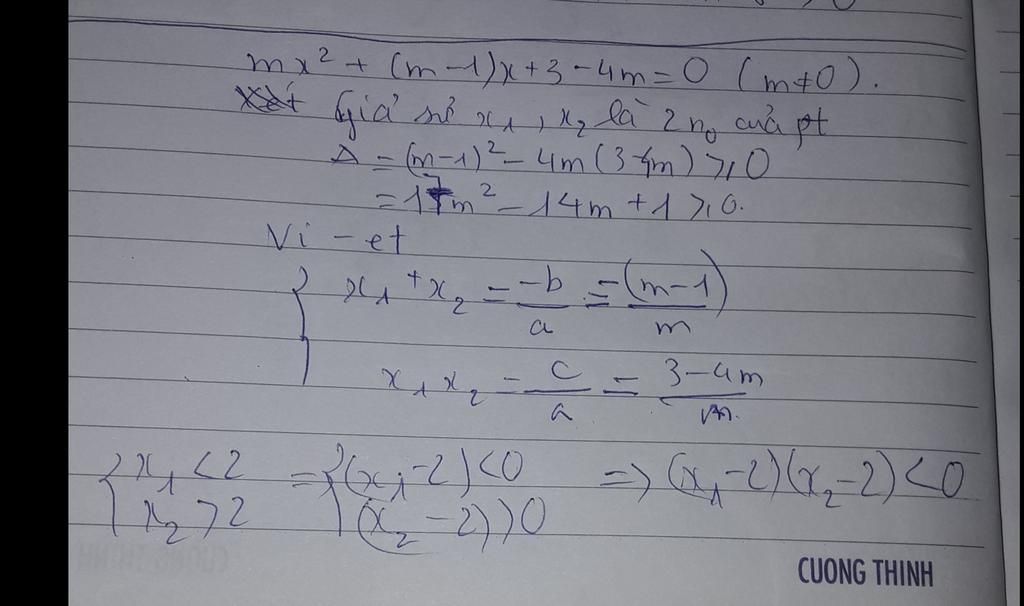 mx² + (m-1)x+3-4m=0 (m≠0).
Giả sử x₁, x₂ là 2 n₀ của pt
Δ = (m-1)² - 4m(3-4m) ≥ 0
= 17m² - 14m + 1 ≥ 0.
Vi-et
{ x₁ + x₂ = -b/a = -(m-1)/m
x₁x₂ = c/a = 3-4m/m
{ x₁ < 2 => { (x₁-2) < 0 => (x₁-2)(x₂-2) < 0
x₂ > 2 (x₂-2) > 0
CUONG THINH